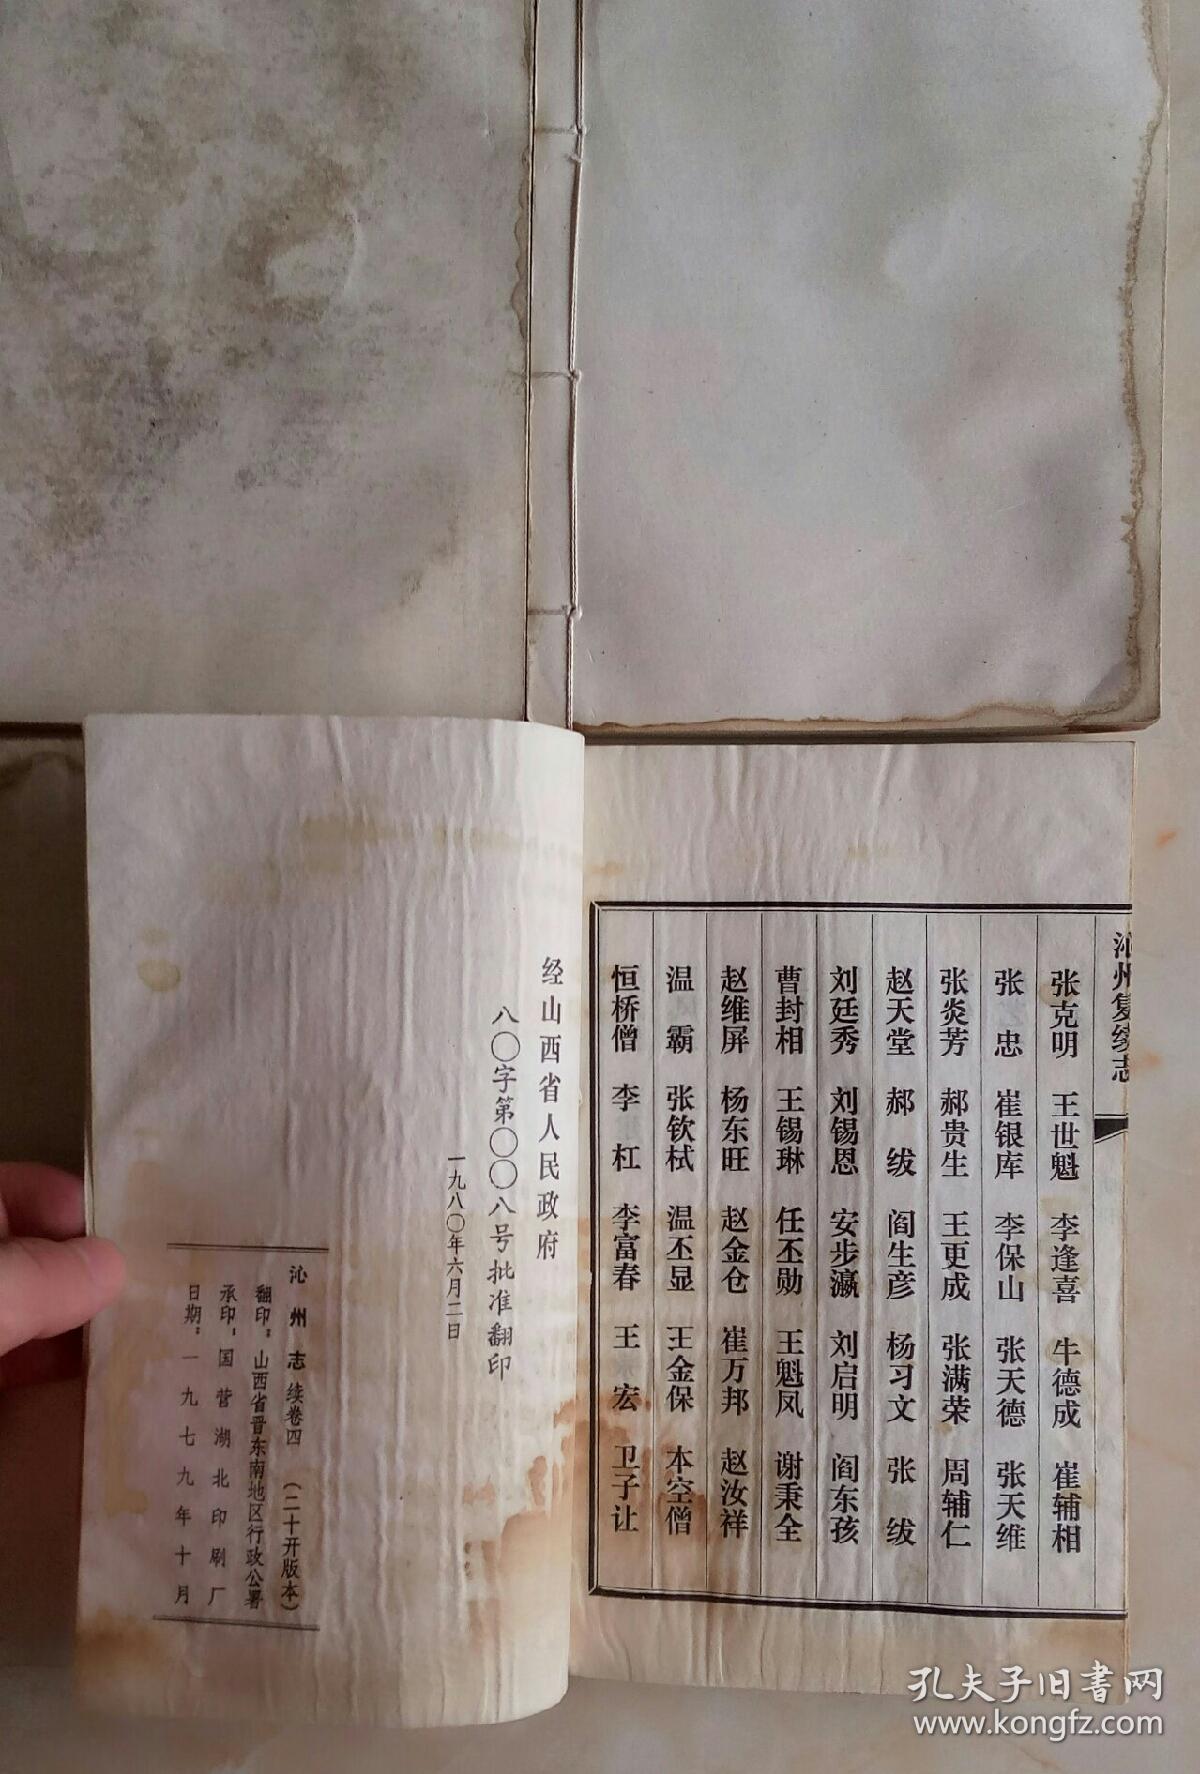 沁州复续志
张克明 王世魁 李逢喜 牛德成 崔辅相
张忠 崔银库 李保山 张天德 张天维
张炎芳 郝贵生 王更成 张满荣 周辅仁
赵天堂 郝绂 阎生彦 杨习文 张绂
刘廷秀 刘锡恩 安步瀛 刘启明 阎东孩
曹封相 王锡琳 任丕勋 王魁凤 谢秉全
赵维屏 杨东旺 赵金仓 崔万邦 赵汝祥
温霸 张钦栻 温丕显 王金保 本空僧
恒桥僧 李杠 李富春 王宏 卫子让
经山西省人民政府
八〇字第〇〇八号批准翻印
一九八〇年六月二日
沁州志 续卷四 (二十开版本)
翻印：山西省晋东南地区行政公署
承印：国营湖北印刷厂
日期：一九七九年十月
孔夫子旧书网
www.kongfz.com